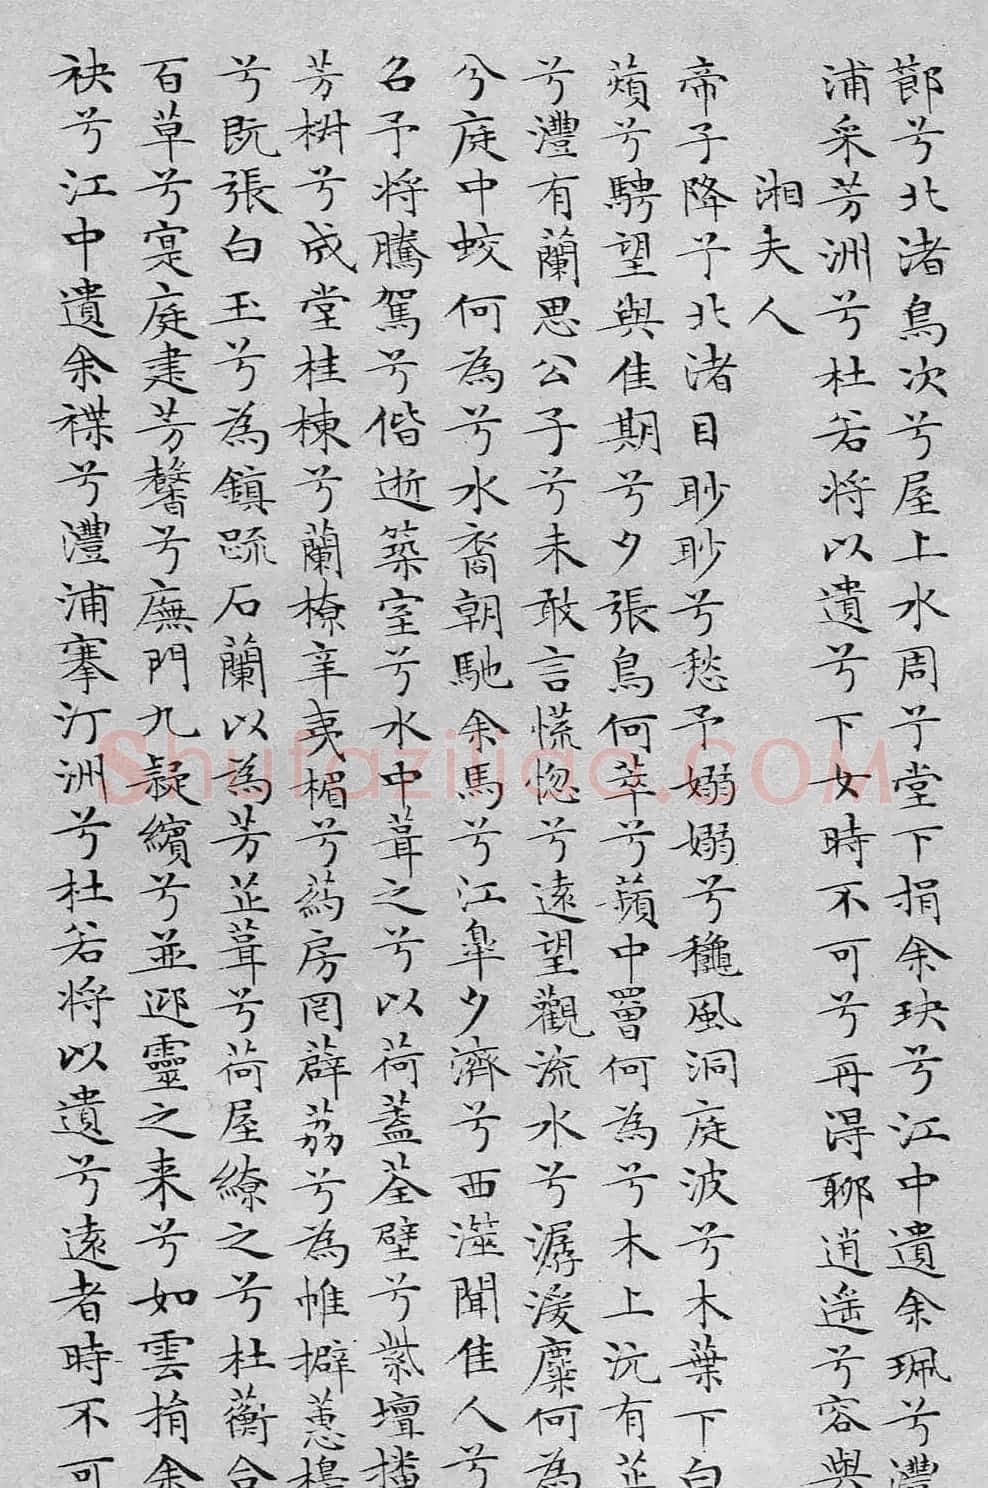 節兮北渚鳥次兮屋上水周兮堂下捐余玦兮江中遺余珮兮澧
浦采芳洲兮杜若將以遺兮下女時不可兮再得聊逍遥兮容與
湘夫人
帝子降兮北渚目眇眇兮愁予嫋嫋兮穐風洞庭波兮木葉下白
薠兮騁望與佳期兮夕張鳥何萃兮蘋中罾何為兮木上沅有芷
兮澧有蘭思公子兮未敢言慌惚兮遠望觀流水兮潺湲麋何為
兮庭中蛟何為兮水裔朝馳余馬兮江皐夕濟兮西澨聞佳人兮
召予將騰駕兮偕逝築室兮水中葺之兮以荷蓋荃壁兮紫壇播
芳椒兮成堂桂棟兮蘭橑辛夷楣兮葯房罔薜荔兮為帷擗蕙櫋
兮既張白玉兮為鎮疏石蘭以為芳芷葺兮荷屋繚之兮杜蘅合
百草兮寔庭建芳馨兮廡門九嶷繽兮並迎靈之来兮如雲捐余
袂兮江中遺余褋兮澧浦搴汀洲兮杜若將以遺兮遠者時不可
Shufaziliao.COM